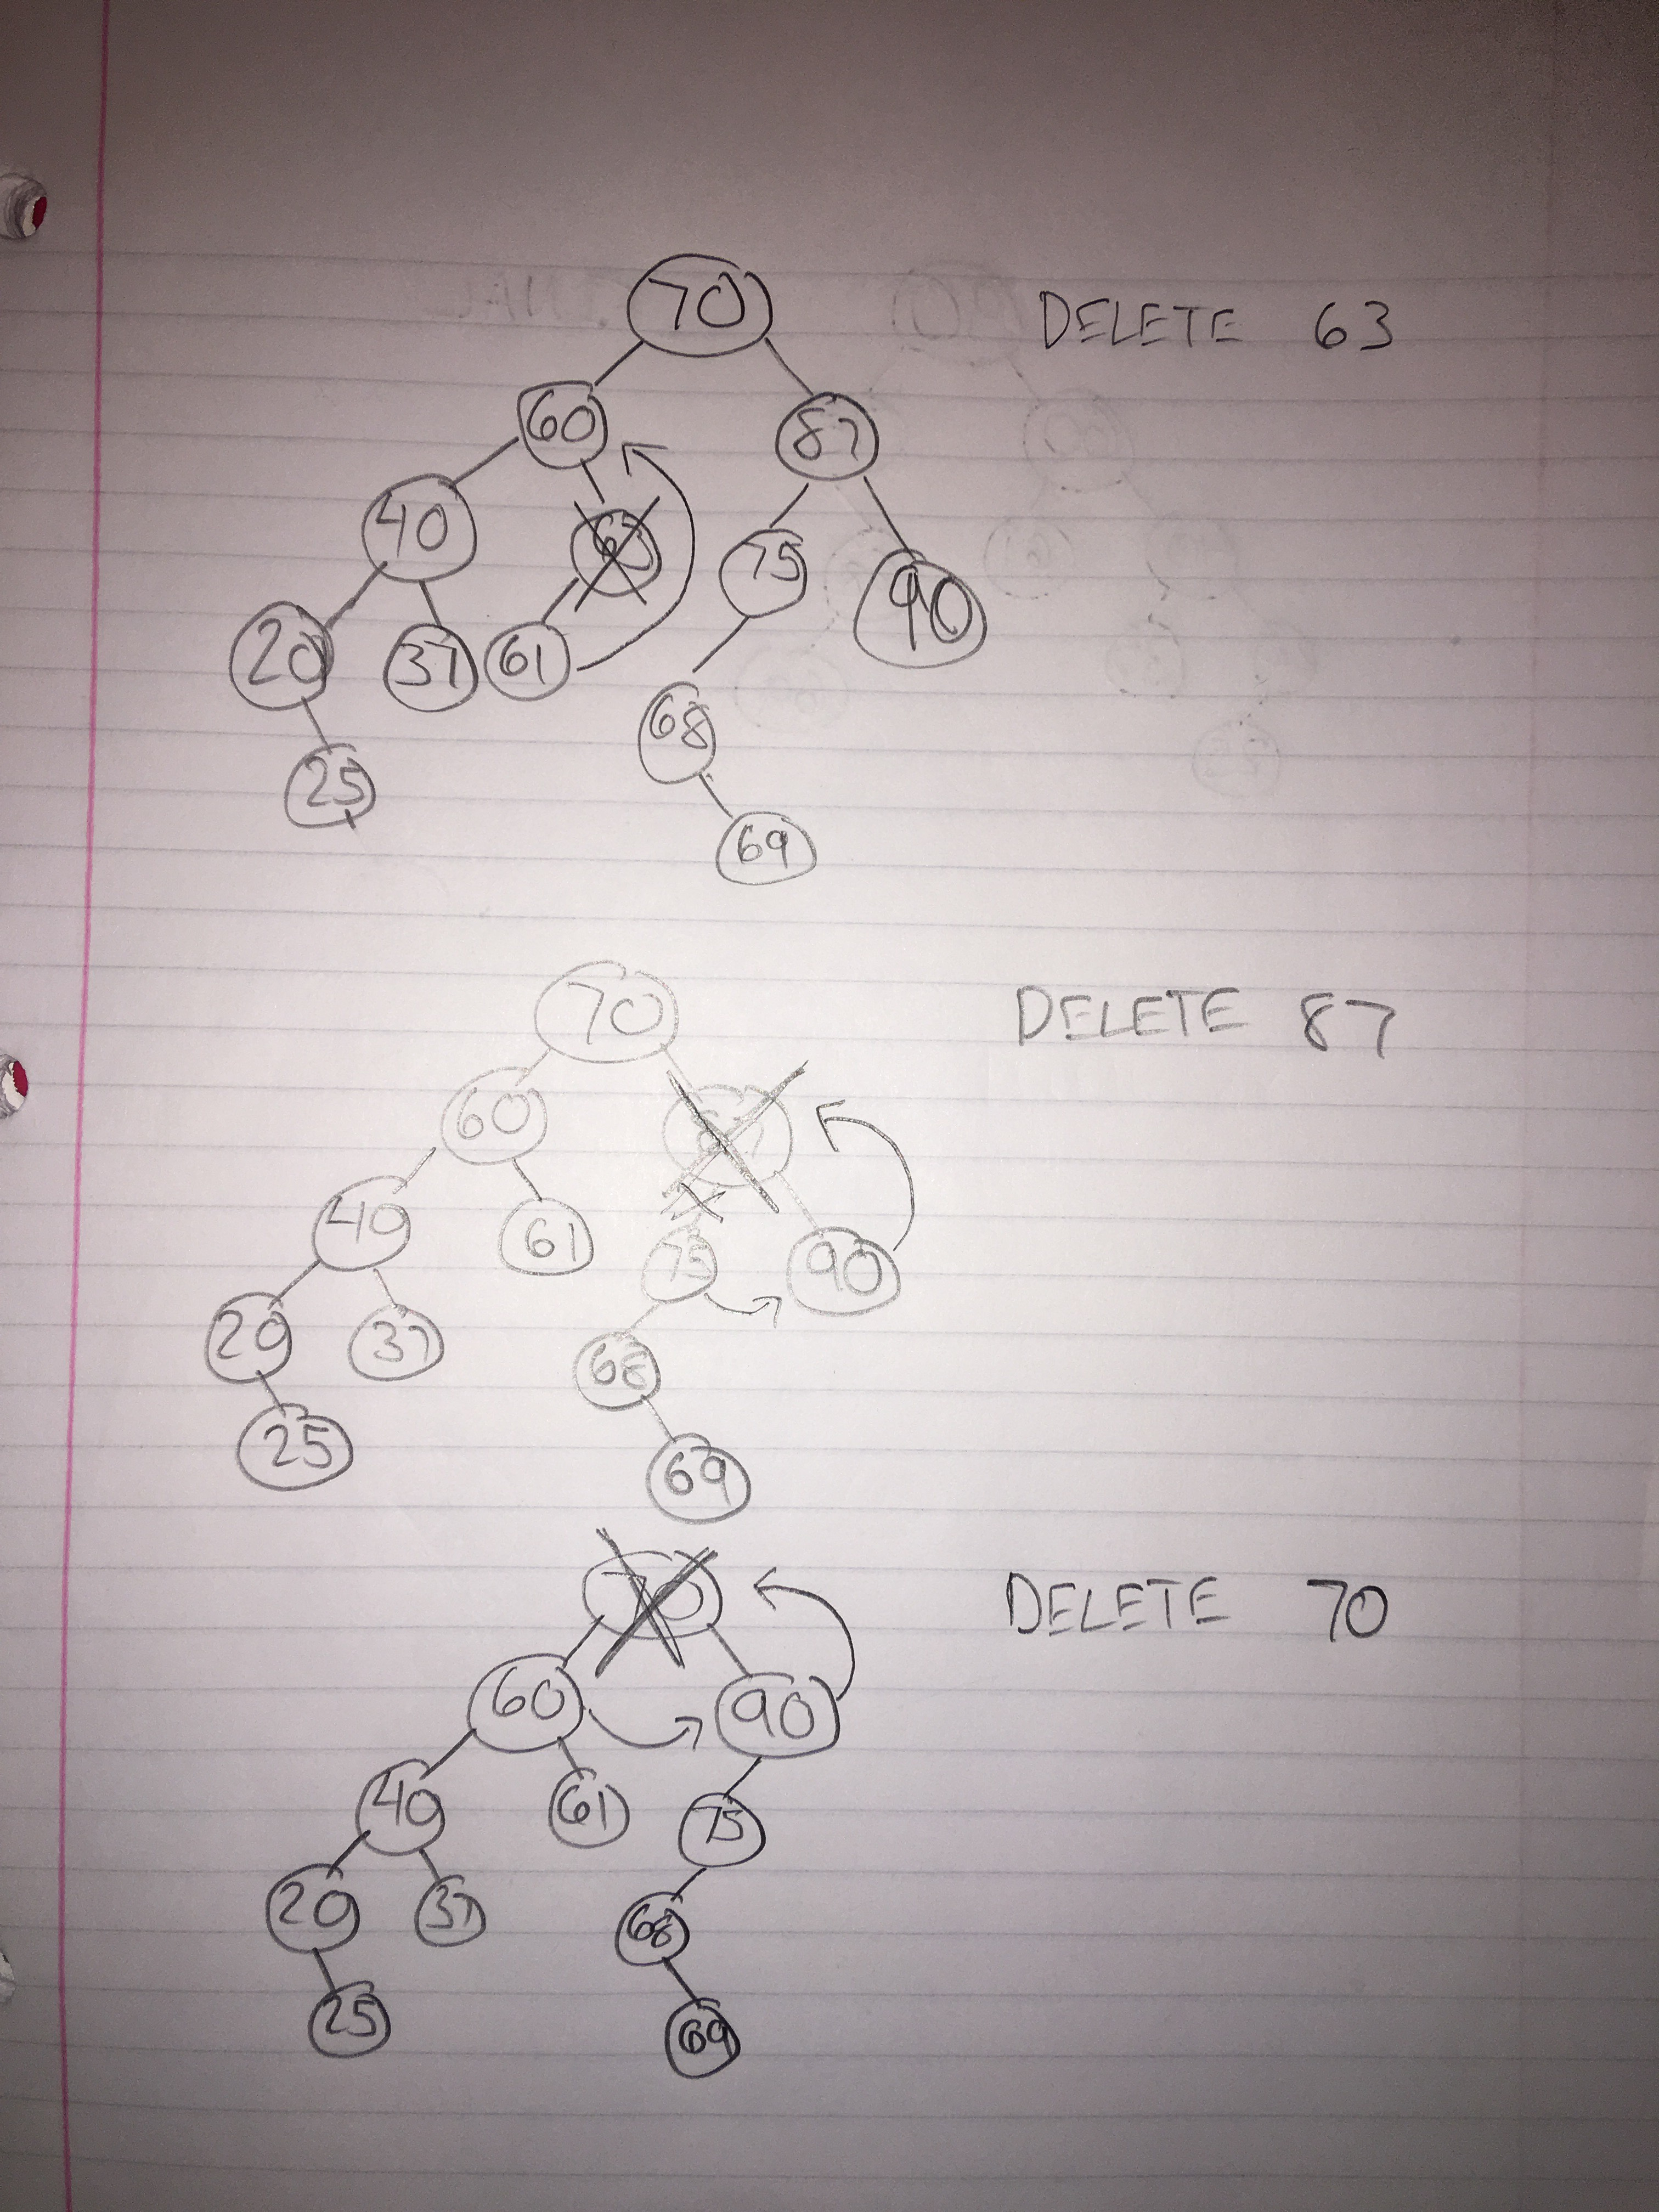 70 DELETE 63
60 87
40 63 75 90
20 37 61 68
25 69
70 DELETE 87
60 87
40 61 75 90
20 37 68
25 69
70 DELETE 70
60 90
40 61 75
20 37 68
25 69